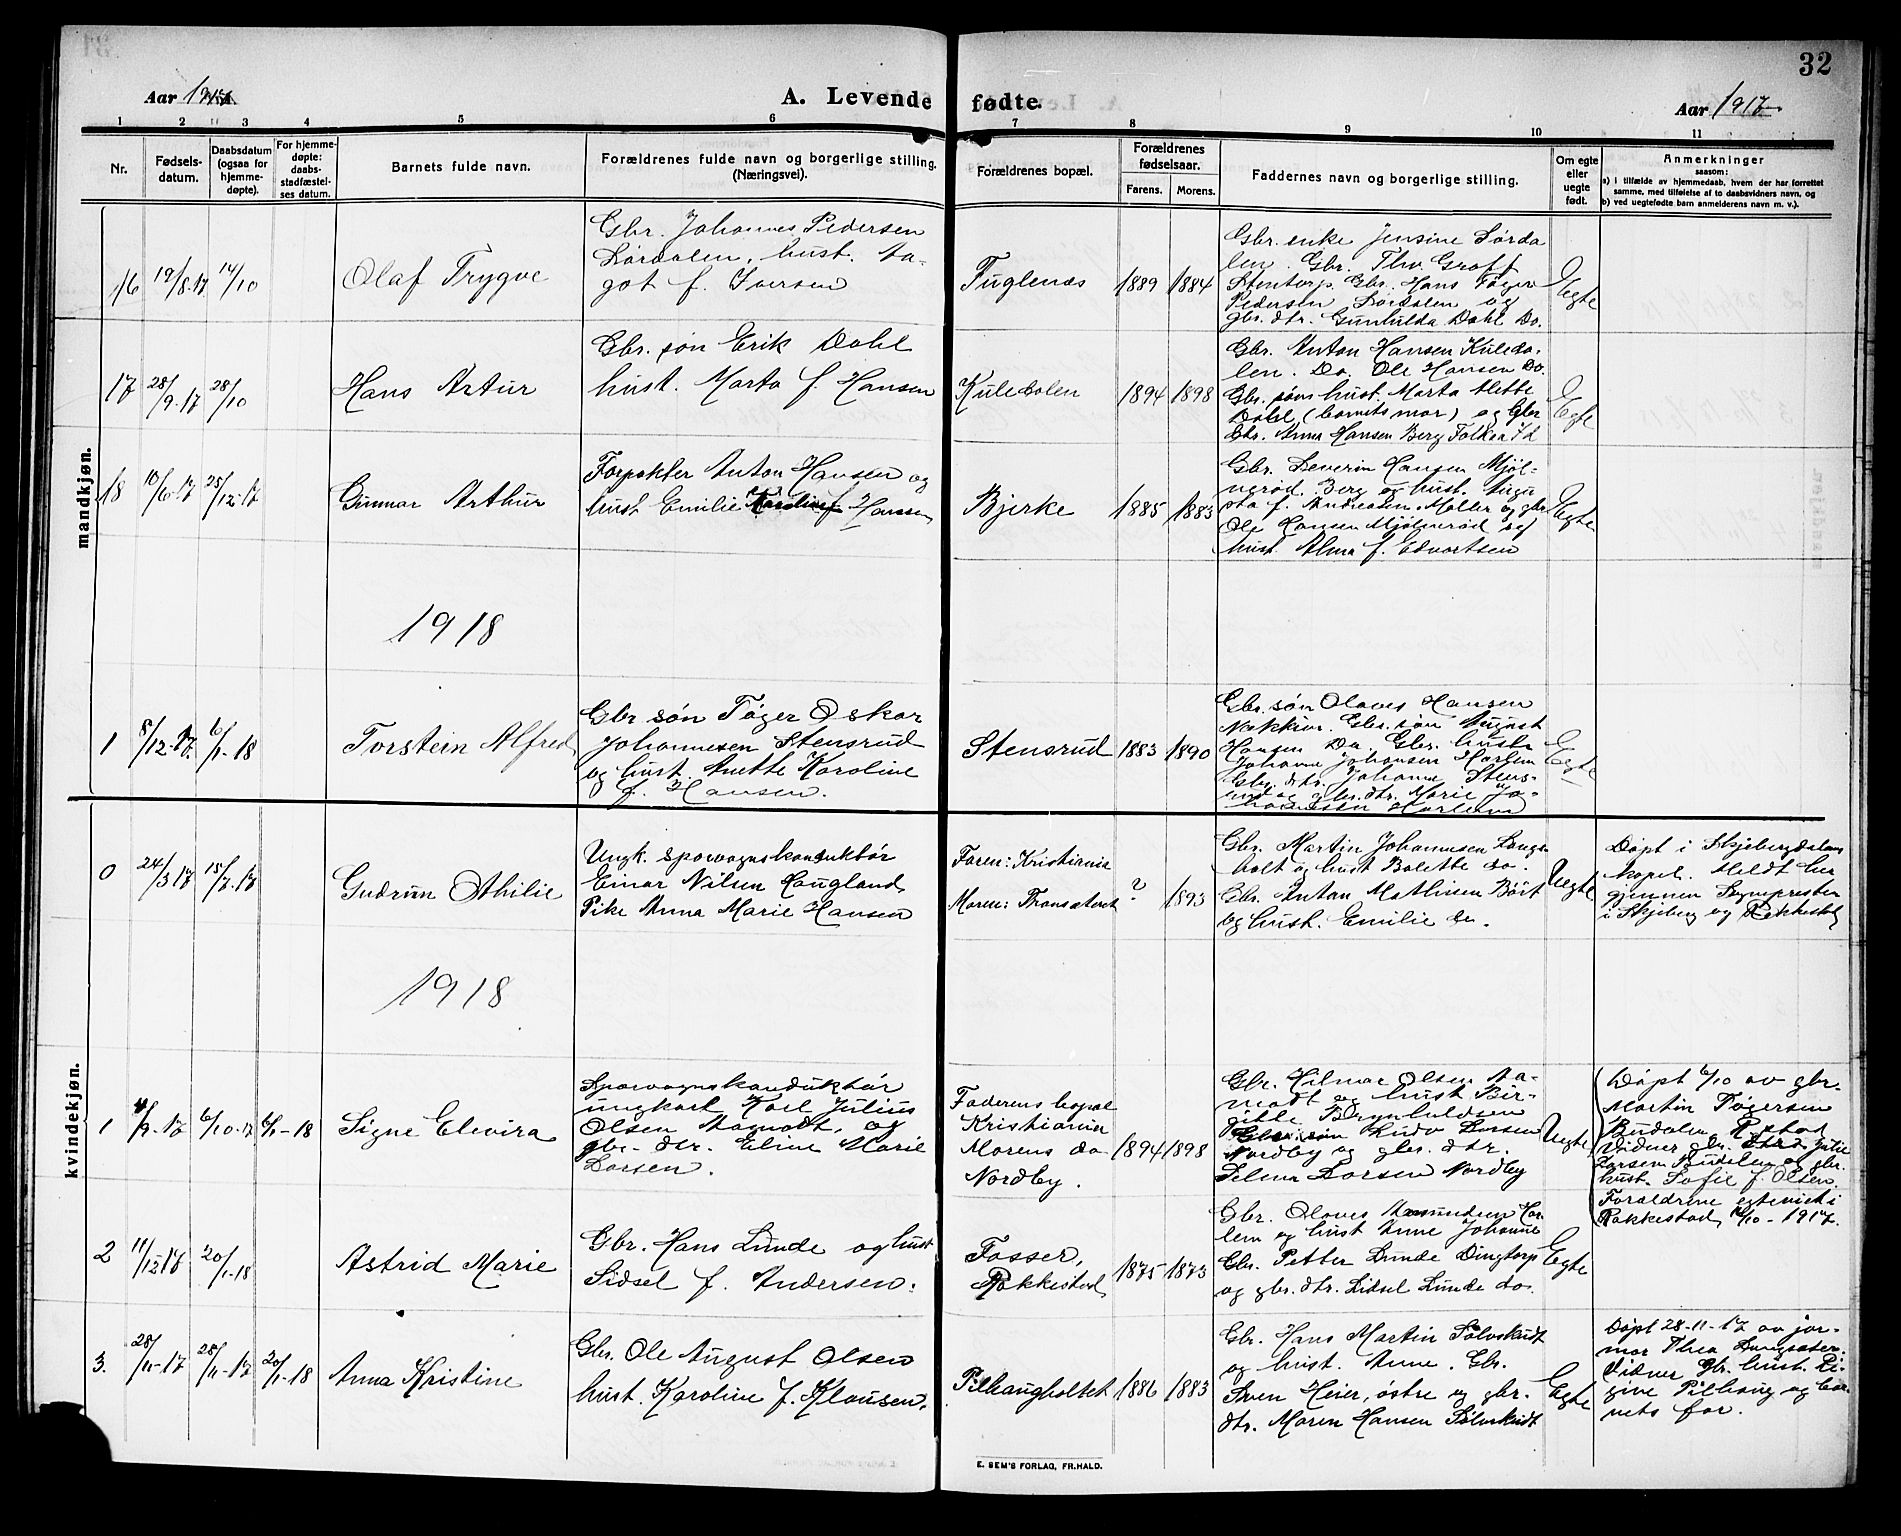 32
Aar 1917
A. Levende fødte.
Aar 1917
1 2 3 4 5 6 7 8 9 10 11
Nr.
Fødsels-
datum.
Daabsdatum
(ogsaa for
hjemme-
døpte).
For hjemme-
døpte:
daabs-
stadfæstel-
ses datum.
Barnets fulde navn.
Forældrenes fulde navn og borgerlige stilling.
(Næringsvei).
Forældrenes bopæl.
Forældrenes
fødselsaar.
Farens. Morens.
Faddernes navn og borgerlige stilling.
Om egte
eller
uegte
født.
Anmerkninger
saasom:
a) i tilfælde av hjemmedaab, hvem der har forrettet
samme, med tilføielse af to daabsvidners navn, og
b) ved uegtefødte barn anmelderens navn m. v.).
mandkjøn.
16
19/8-17
14/10
Olaf Trygve
Gbr. Johannes Pedersen
Lørdalen, hust. Aa-
got f. Iversen
Fuglenæs
1889
1884
Gbr. enke Jensine Lørda
len. Gbr. Thv. Graff
Stentorp. Gbr. Hans Tøger
Pedersen Lørdalen og
gbr. dtr. Gunhilda Dahl Do.
Egte
17
28/9-17
28/10
Hans Artur
Gbr. søn Erik Dahl
hust. Marta f. Hansen
Kuledalen
1894
1898
Gbr. Anton Hansen Kuleda-
len. Do. Ole Hansen Do.
Gbr. søns hust. Marta Alette
Dahl (barnets mor) og Gbr
dtr. Anna Hansen Berg
Egte
18
10/6-17
25/12-17
Gunnar Arthur
Forpakter Anton Hansen og
hust Emilie Karoline f Hansen
Bjerke
1885
1883
Gbr. Severin Hansen Mjøl-
nerød, Berg og hust. Augu
sta f. Andreasen Møller og gbr
Ole Hansen Mjølnerød og
hust. Alma f. Edvartsen
Egte
1918
1
8/12-17.
6/1-18
Torstein Alfred
Gbr søn Tøger Oskar
Johannesen Stensrud
og hust. Anette Karoline
f. Hansen.
Stensrud
1883
1890
Gbr. søn Olaves Hansen
Nakkim. Gbr. søn August
Hansen Do. Gbr. hustr
Johanne Johansen Harlem
Gbr. dtr. Johanne Stens-
rud og gbr. dtr. Marie Jo-
hannessen Harlem
Egte
kvindekjøn.
0
24/3 17
15/7-17
Gudrun Othilie
Ungk. sporvognskonduktør
Einar Nilsen Haugland,
Pike Anna Marie Hansen
Faren: Kristiania
Moren: Transæteret
?
1893
Gbr. Martin Johannesen Lange
holt og hust Bolette do.
Gbr. Anton Mathisen Børt
og hust. Emilie do.
Uegte
Døpt i Skjebergdalens
kapel. Meldt her
gjennem Sogneprester
i Skjeberg og Rakkestad
1918
1
4/9-17
6/10-17
6/1-18
Signe Elevira
Sporvognskonduktør
ungkarl Karl Julius
Olsen Aamodt, og
gbr. dtr. Eline Marie
Larsen.
Faderens bopæl
Kristiania
Morens do
Nordby.
1894
1898
Gbr. Hilmar Olsen Aa-
modt og hust Bir-
gitte Brynhildsen
Gbr. søn Ludv Larsen
Nordby og gbr. dtr.
Selma Larsen Nordby
Uegte
Døpt 6/10 av gbr.
Martin Tøgersen
Budalen, R.stad
Vidner gbr. dtr. Julie
Larsen Budalen og gbr.
hust. Sofie f. Olsen.
Forældrene egteviet i
Rakkestad /10-1917.
2
11/12 17
20/1-18
Astrid Marie
Gbr. Hans Lunde og hust
Sidsel f. Andersen.
Fosser,
Rakkestad
1875
1873
Gbr. Olaves Amundsen Har
lem og hust Anne Johanne
Gbr. Petter Lunde Dingtorp
og gbr. dtr. Sidsel Lunde do.
Egte
3.
28/11-17
28/11-17
20/1-18
Anna Kristine
Gbr. Ole August Olsen
hust. Karoline f. Klausen.
Pilhaugholtet
1886
1883
Gbr. Hans Martin Sølvskudt
og hust. Anne. Gbr.
Sven Heier, østre og gbr.
dtr. Maren Hansen Sølvskudt
Egte
Døpt 28-11-17 av jor-
mor Thea Langsæter.
Vidner Gbr. hust. Li-
gine Pilhaug og bar-
nets far.
E. SEM'S FORLAG, FR.HALD.